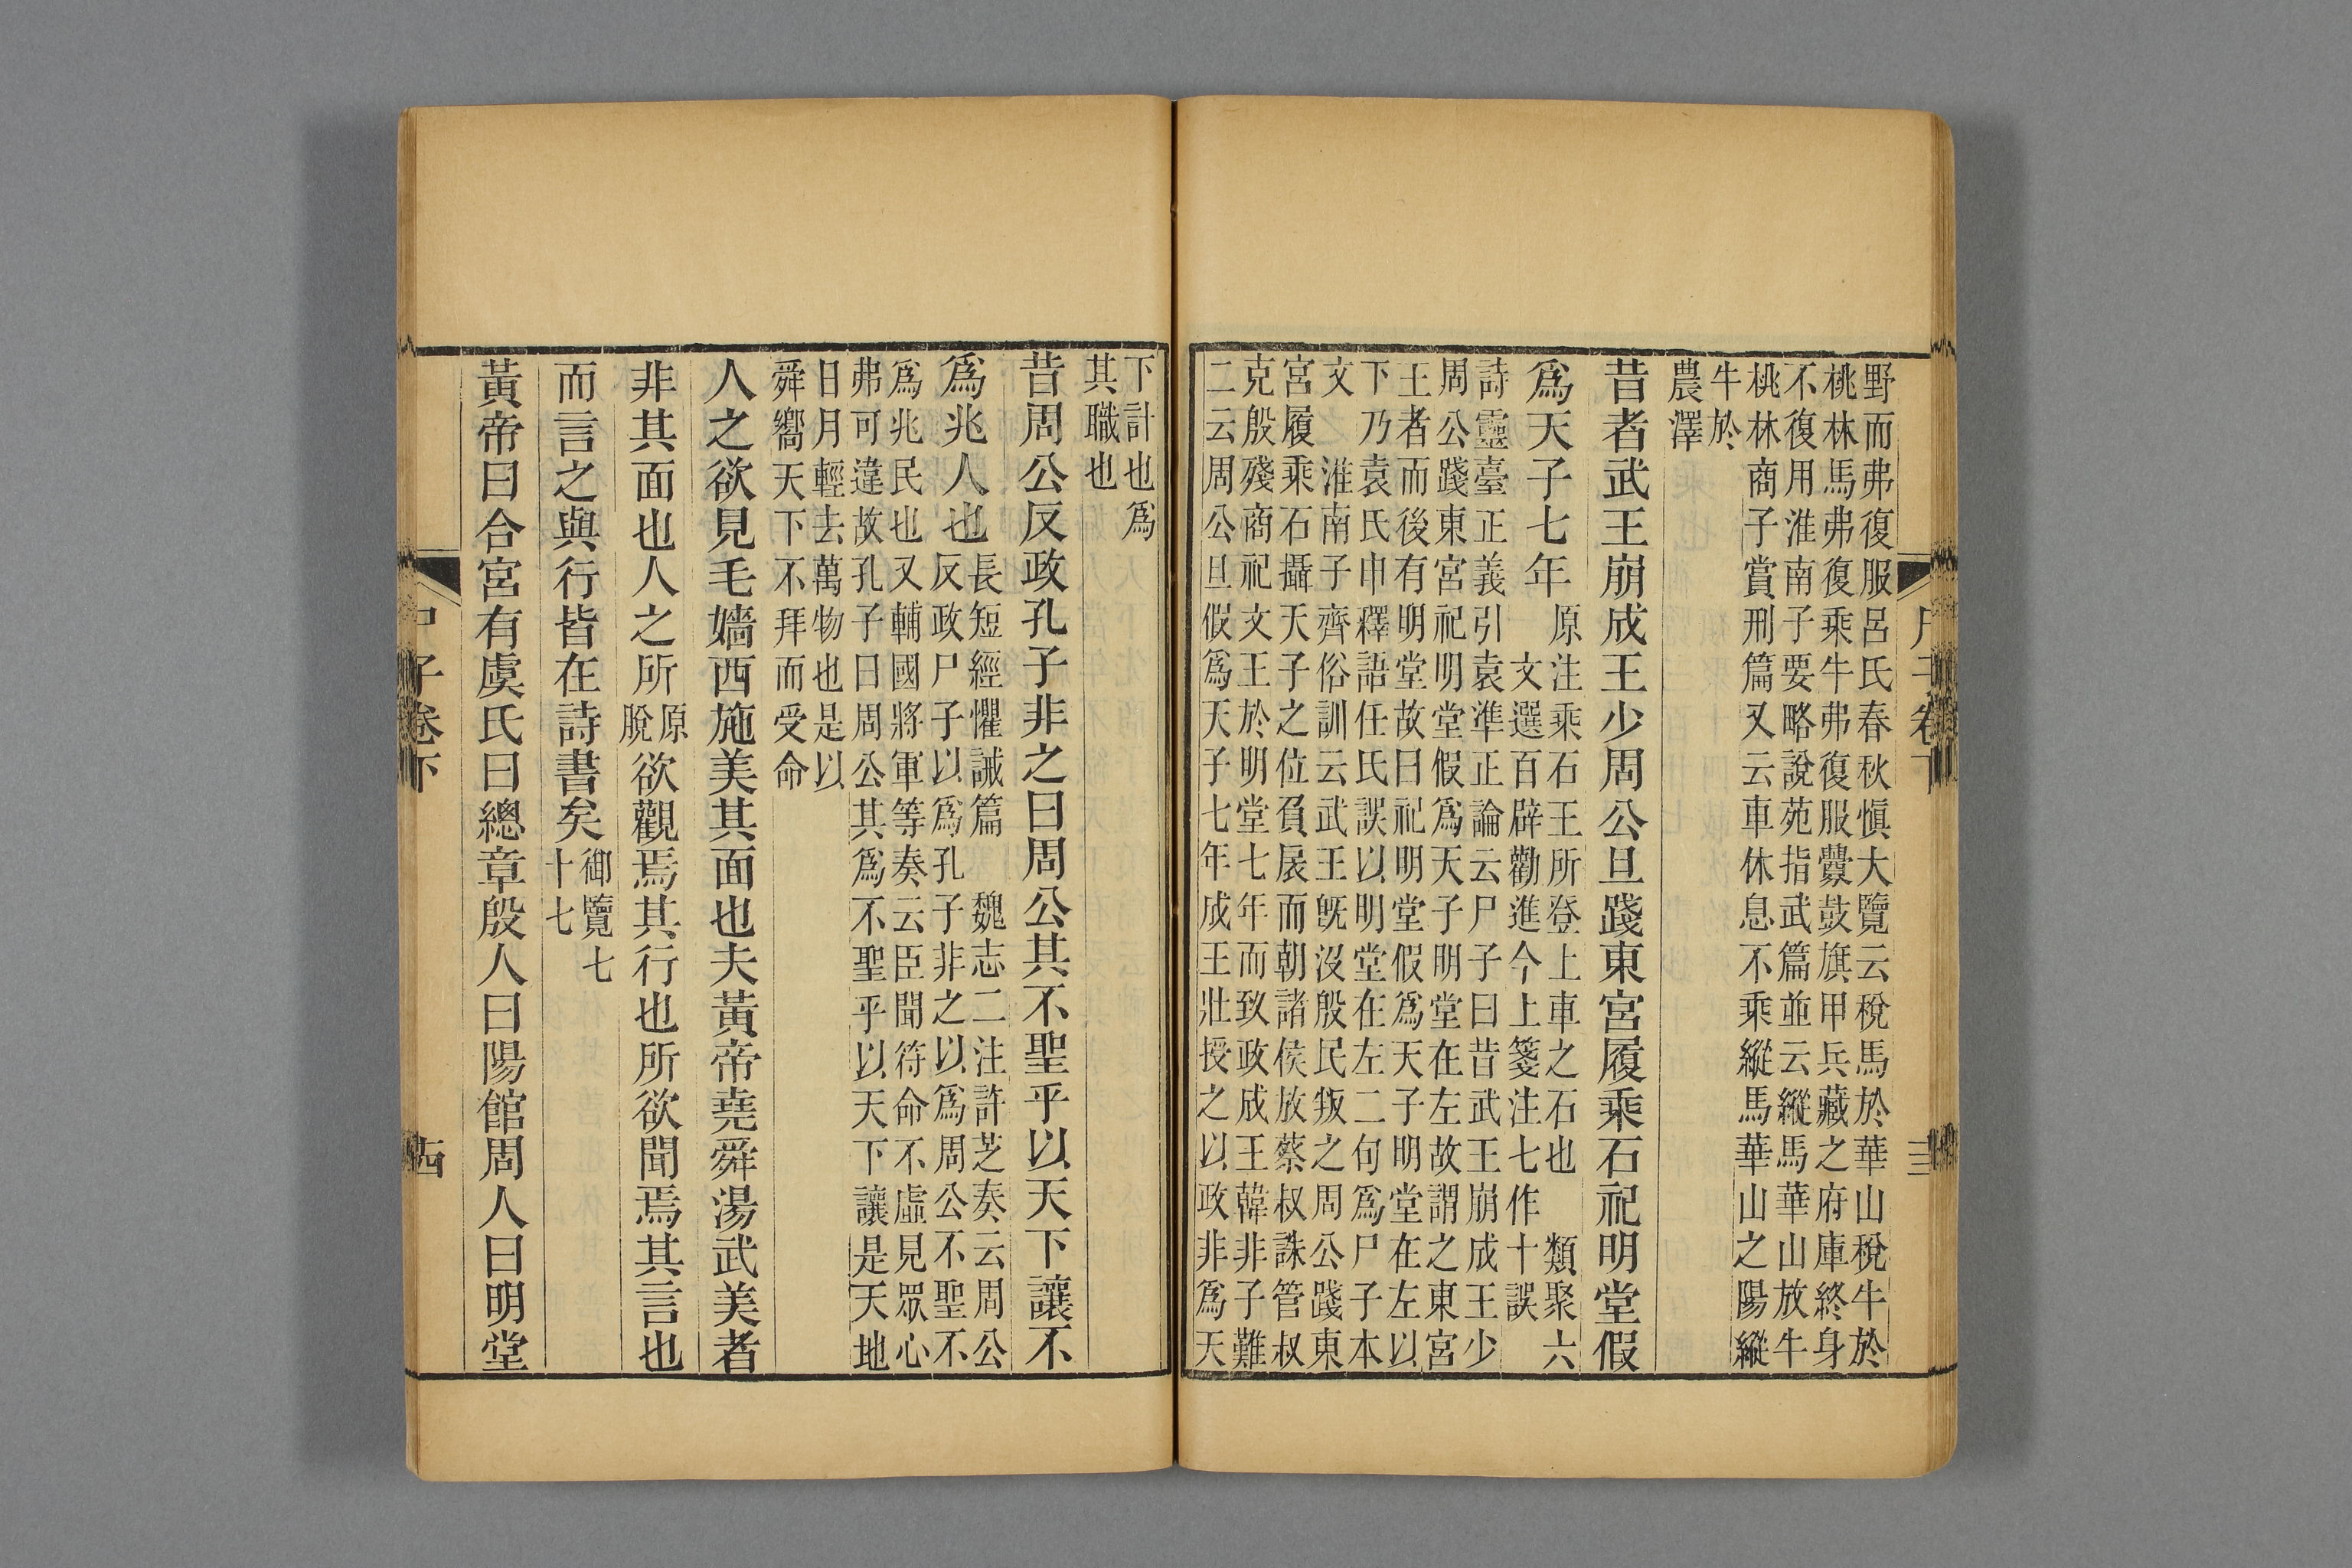 野而弗復服呂氏春秋愼大覽云稅馬於華山稅牛於
桃林馬弗復乘牛弗復服釁鼓旗甲兵藏之府庫終身
不復用淮南子要略說苑指武篇並云縱馬華山放牛
桃林商子賞刑篇又云車休息不乘縱馬華山之陽縱
牛於
農澤
昔者武王崩成王少周公旦踐東宮履乘石祀明堂假
爲天子七年
原注乘石王所登上車之石也 類聚六
文選百辟勸進今上箋注七作十誤
詩靈臺正義引袁準正論云尸子曰昔武王崩成王少
周公踐東宮祀明堂假爲天子明堂在左故謂之東宮
王者而後有明堂故曰祀明堂假爲天子明堂在左以
下乃袁氏申釋語任氏誤以明堂在左二句爲尸子本
文 淮南子齊俗訓云武王旣沒殷民叛之周公踐東
宮履乘石攝天子之位負扆而朝諸侯放蔡叔誅管叔
克殷殘商祀文王於明堂七年而致政成王韓非子難
二云周公旦假爲天子七年成王壯授之以政非爲天
尸子卷下
三
下計也爲
其職也
昔周公反政孔子非之曰周公其不聖乎以天下讓不
爲兆人也
長短經懼誡篇 魏志二注許芝奏云周公
反政尸子以爲孔子非之以爲周公不聖不
爲兆民也又輔國將軍等奏云臣聞符命不虛見眾心
弗可違故孔子曰周公其爲不聖乎以天下讓是天地
日月輕去萬物也是以
舜嚮天下不拜而受命
人之欲見毛嬙西施美其面也夫黃帝堯舜湯武美者
非其面也人之所
原
脫
欲觀焉其行也所欲聞焉其言也
而言之與行皆在詩書矣
御覽七
十七
黃帝曰合宮有虞氏曰總章殷人曰陽館周人曰明堂
子卷下